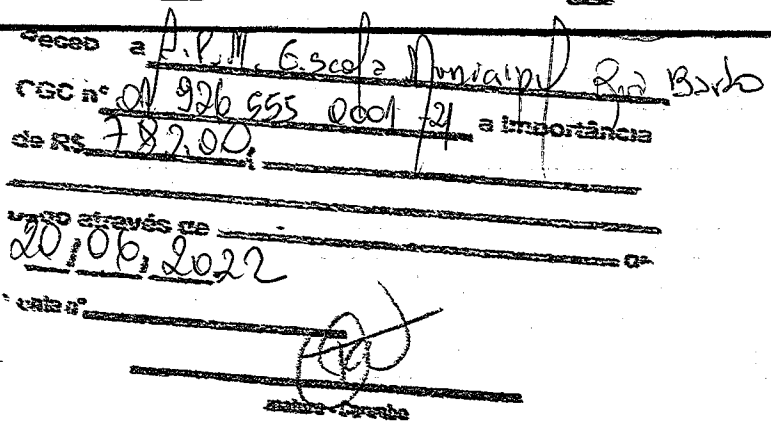 a A.P.M. Escola Municipal Ruy Barbo
CGC nº 01 926 555 0001-21 a importância
de R$ 782,00
pago através de
20,06,2022
nº